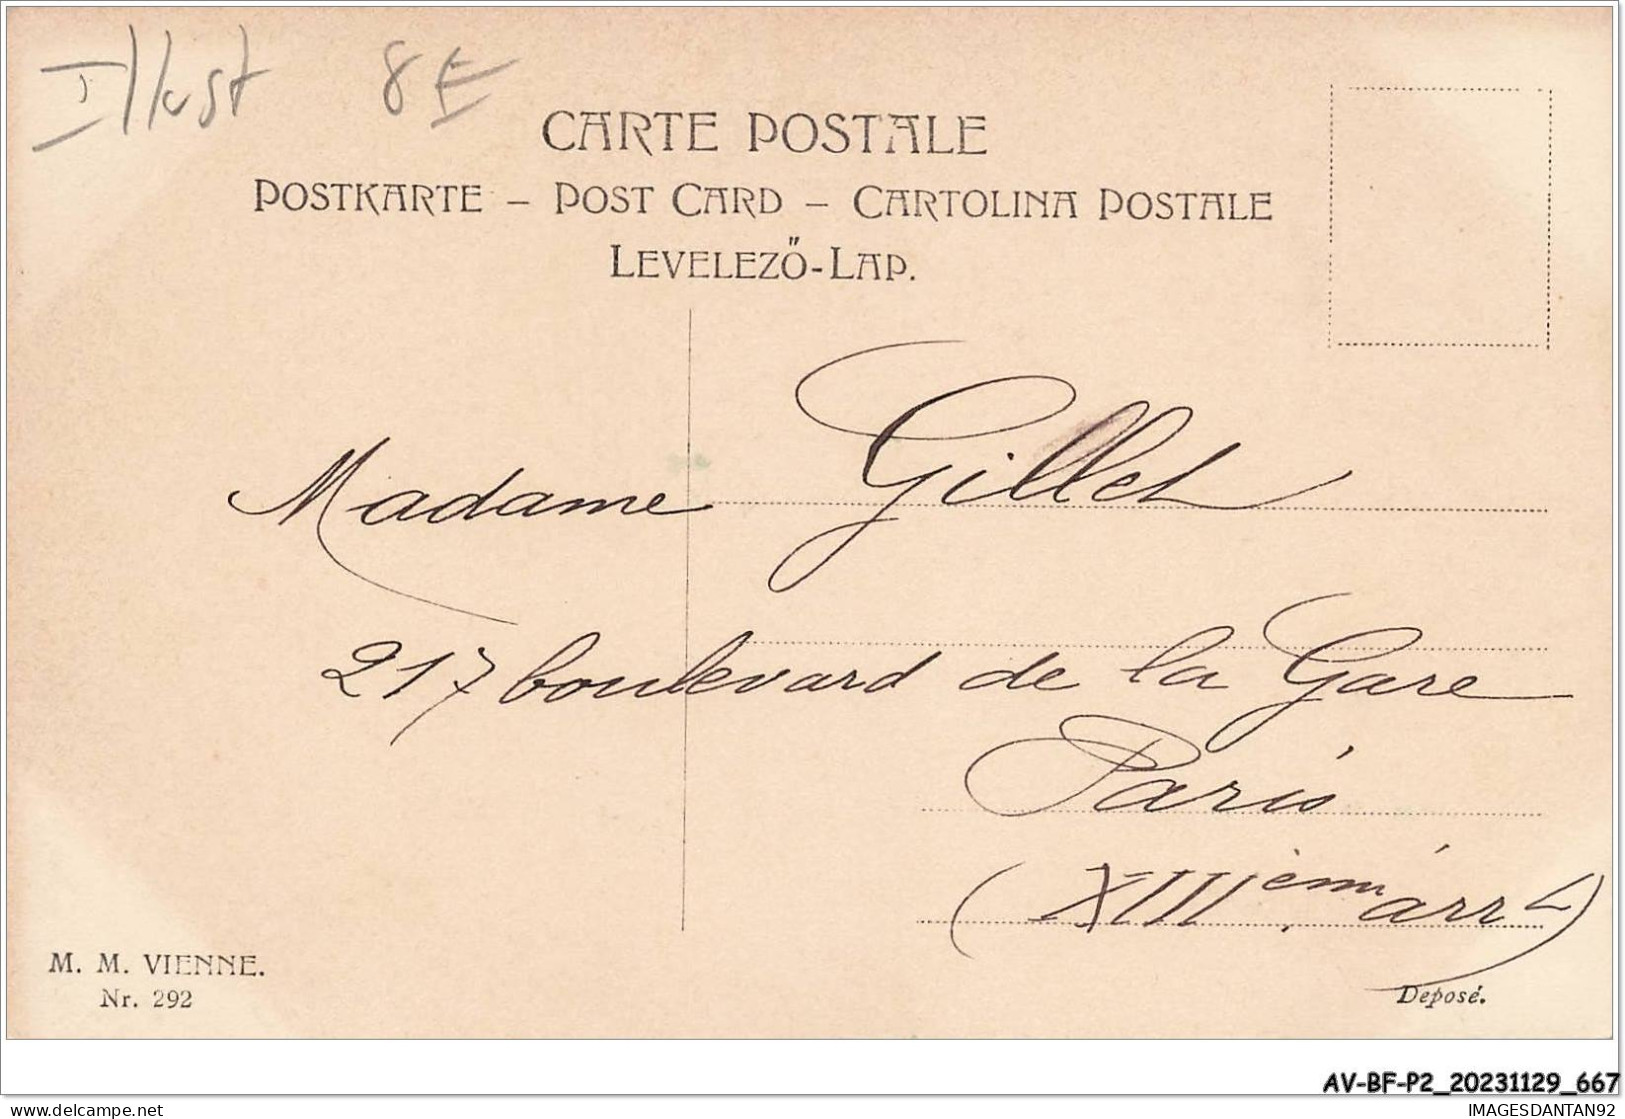 Illust 8E
CARTE POSTALE
POSTKARTE – POST CARD – CARTOLINA POSTALE
LEVELEZŐ-LAP.
Madame Gillet
217 boulevard de la Gare
Paris
(XIIIèm arrt)
M. M. VIENNE.
Nr. 292
Deposé.
AV-BF-P2_20231129_667
delcampe.net
IMAGESDANTAN92